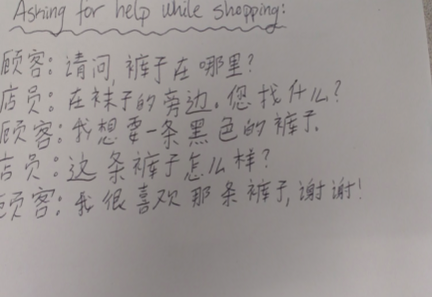 Asking for help while shopping:
顾客: 请问, 裤子在哪里?
店员: 在袜子的旁边。您找什么?
顾客: 我想要一条黑色的裤子.
店员: 这条裤子怎么样?
顾客: 我很喜欢那条裤子, 谢谢!